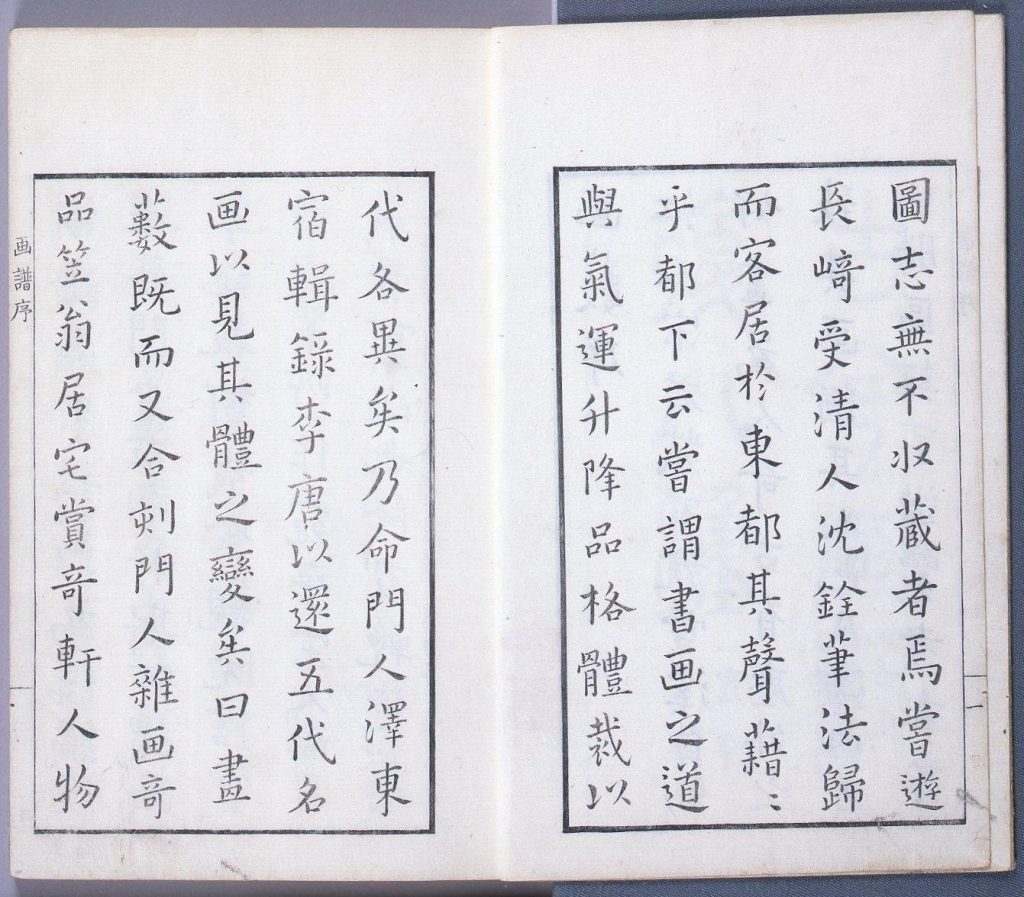 圖志無不収蔵者焉嘗遊
長﨑受清人沈銓筆法歸
而客居於東都其聲藉〻
乎都下云嘗謂書画之道
與氣運升降品格體裁以
代各異矣乃命門人澤東
宿輯録李唐以還五代名
画以見其體之變矣曰畫
藪既而又合刻門人雜画奇
品笠翁居宅賞奇軒人物
画譜序
一